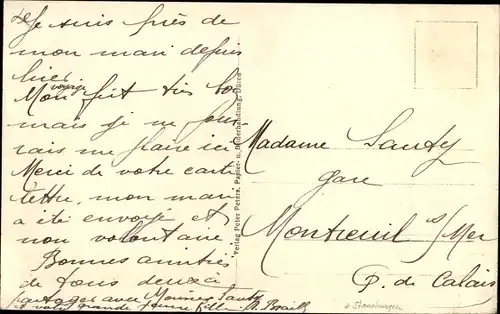 Je suis près de
mon mari depuis
hier
voyage
Mon fut très bon
mais je ne pour
rais me plaire ici
Merci de votre carte
lettre, mon mari
a été envoyé et
non volontaire
Bonnes amitiés
de tous deux à
partager avec Monsieur Santy
et votre grande jeune fille
Verlag Peter Peters, Papier- u. Bilderhandlung, Düren
Madame Santy
gare
Montreuil s/Mer
P. de Calais